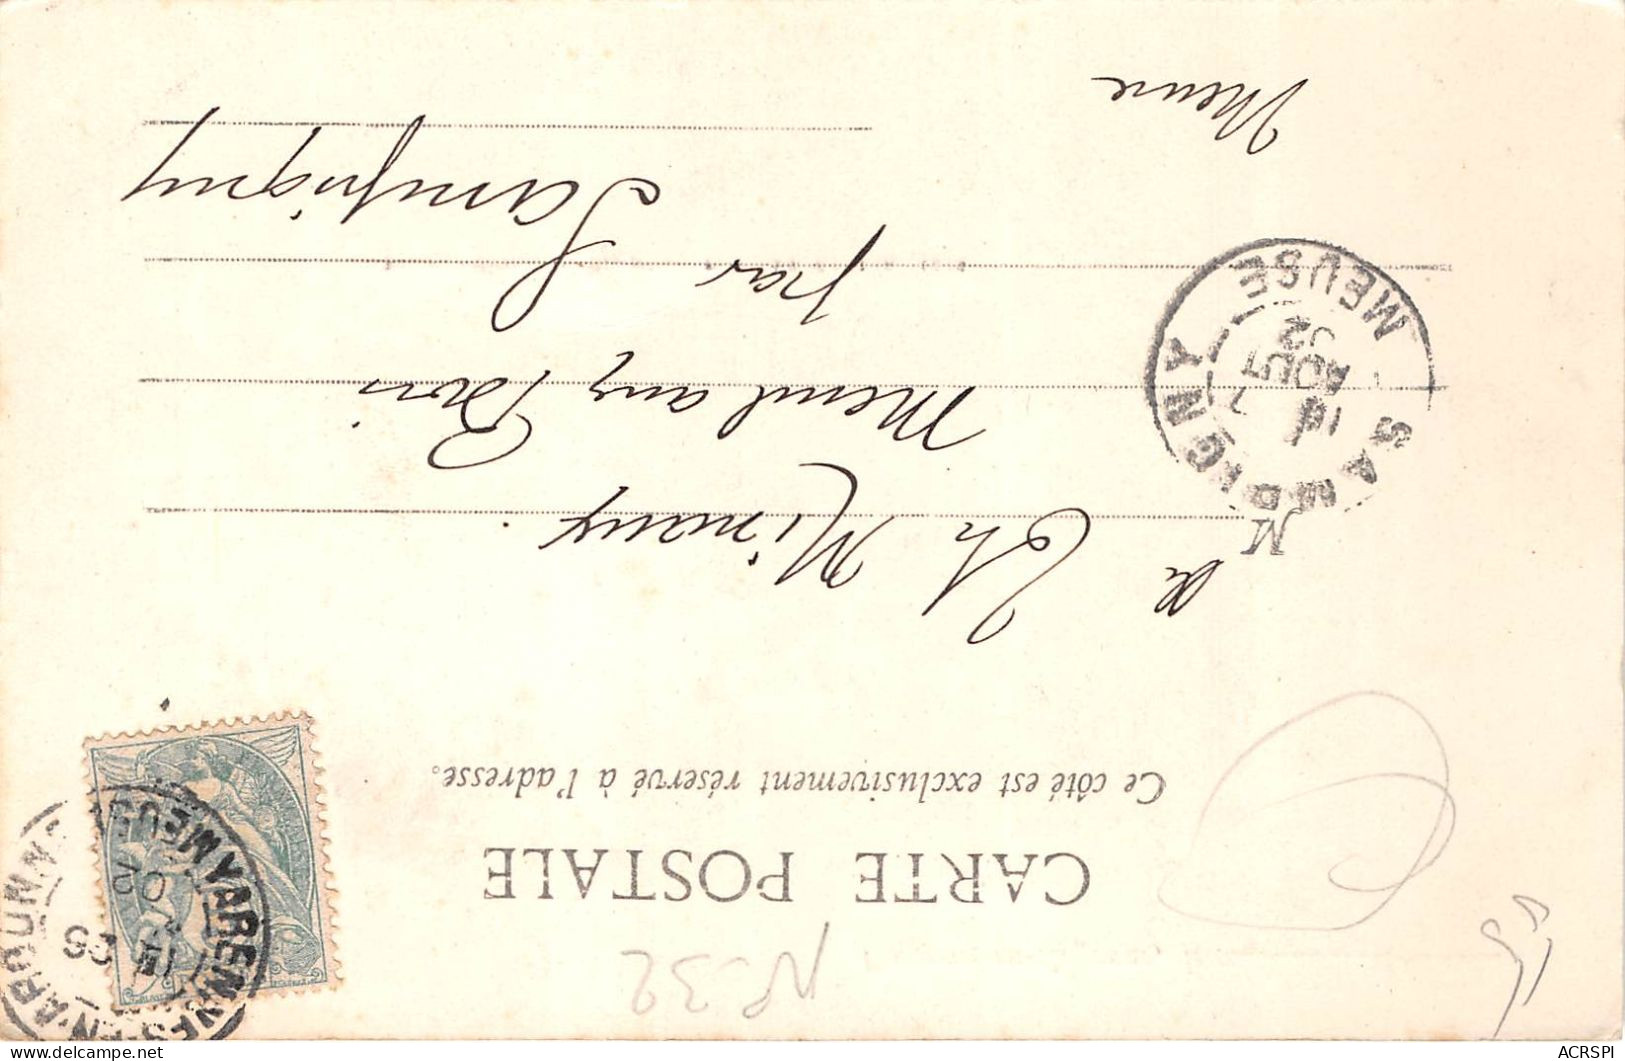 N° 32
CARTE POSTALE
Ce côté est exclusivement réservé à l'adresse.
M
Ch Minaux.
Menil aux Bois
par
Sampigny
Meuse
SAMPIGNY
MEUSE
AOUT
02
VARENNES-EN-ARGONNE
MEUSE
ACRSPI